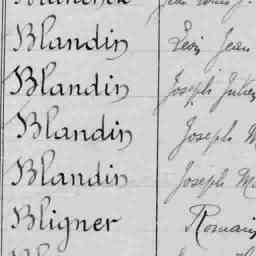 Blandin Léon Jean
Blandin Joseph Julien
Blandin Joseph M
Blandin Joseph M
Bligner Romain